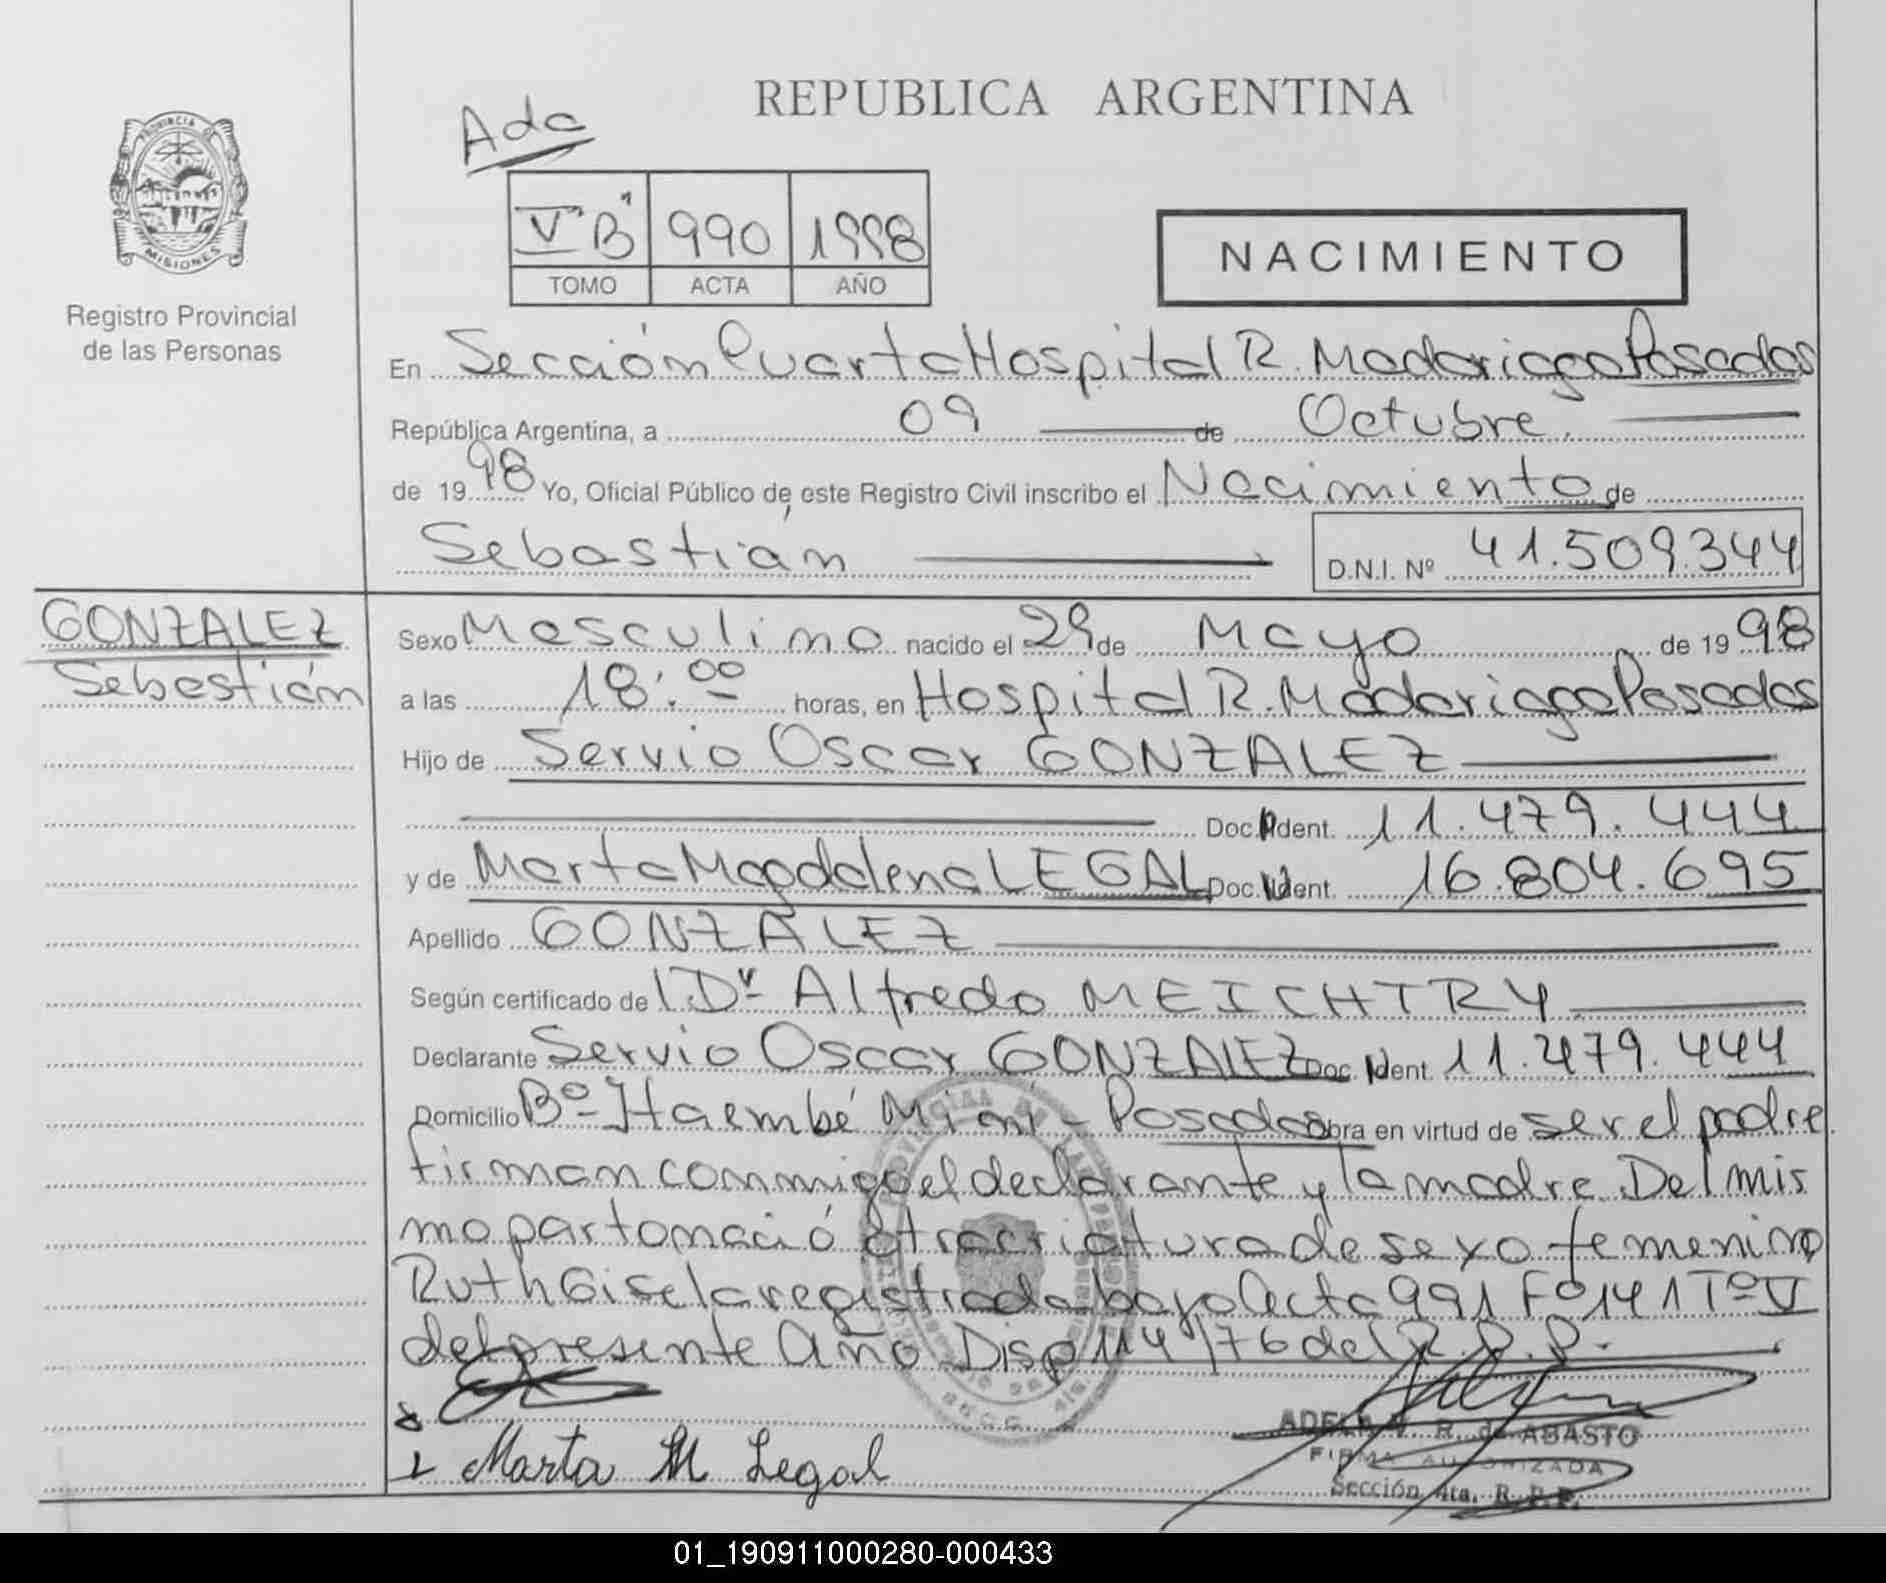 REPUBLICA ARGENTINA
Ada
PROVINCIA DE
MISIONES
Registro Provincial
de las Personas
V "B" 990 1998
TOMO ACTA AÑO
NACIMIENTO
En Sección Cuarta Hospital R. Madariaga Posadas
República Argentina, a 09 de Octubre.
de 1998 Yo, Oficial Público de este Registro Civil inscribo el Nacimiento de
Sebastián D.N.I. Nº 41.509.344
GONZALEZ
Sebastián
Sexo Masculino nacido el 29 de Mayo de 1998
a las 18:00 horas, en Hospital R. Madariaga Posadas
Hijo de Servio Oscar GONZALEZ
Doc. Ident. 11.479.444
y de Marta Magdalena LEGAL Doc. Ident. 16.804.695
Apellido GONZALEZ
Según certificado del Dr Alfredo MEICHTRY
Declarante Servio Oscar GONZALEZ Doc. Ident. 11.479.444
Domicilio Bº Itaembé Miní - Posadas obra en virtud de ser el padre
firman conmigo el declarante y la madre. Del mis
mo parto nació otra criatura de sexo femenino
Ruth Gisela registrada bajo Acta 991 Fº 141 Tº V
del presente Año Disp 114/76 del R.P.P.
Marta M Legal
ADELA R. de ABASTO
FIRMA AUTORIZADA
Sección 4ta. R.P.P.
01_190911000280-000433